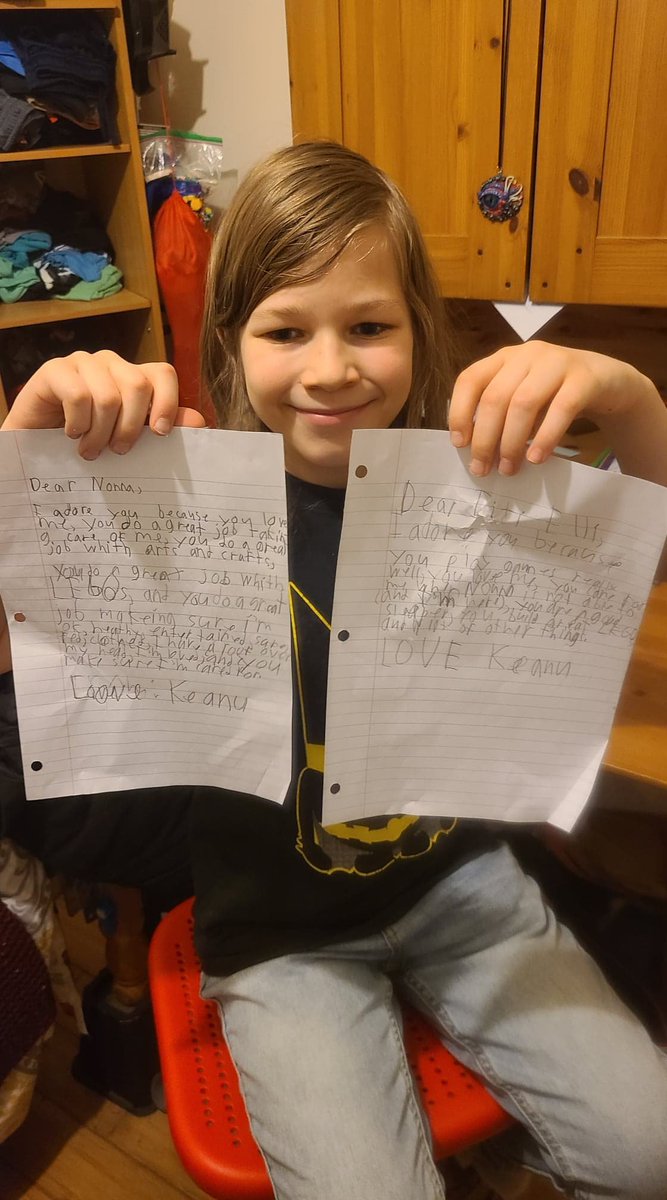 Dear Nonna,
I adore you because you love
me, you do a great job takin
g care of me, you do a great
job whith arts and crafts,
you do a great job whith
LEGOS, and you do a great
job making sure I'm
healthy, entertained, safe,
clothes, I have a roof over
my head, I'm loved, and you
make sure I'm cared for.
Love: Keanu
Dear Titi Elli,
I adore you because
you play games really
well, you love me, you care for
me, Nonna is not able to
you build great LEGOS,
and lots of other things.
LOVE Keanu